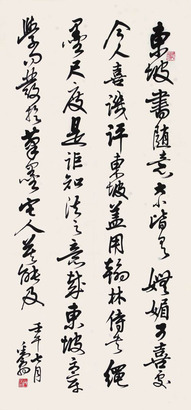 東坡書随意大小皆有嫵媚可喜處
今人喜譏評東坡蓋用翰林侍書繩
墨尺度是詎知法之意哉東坡文章
學問發於筆墨它人莫能及
壬午七月